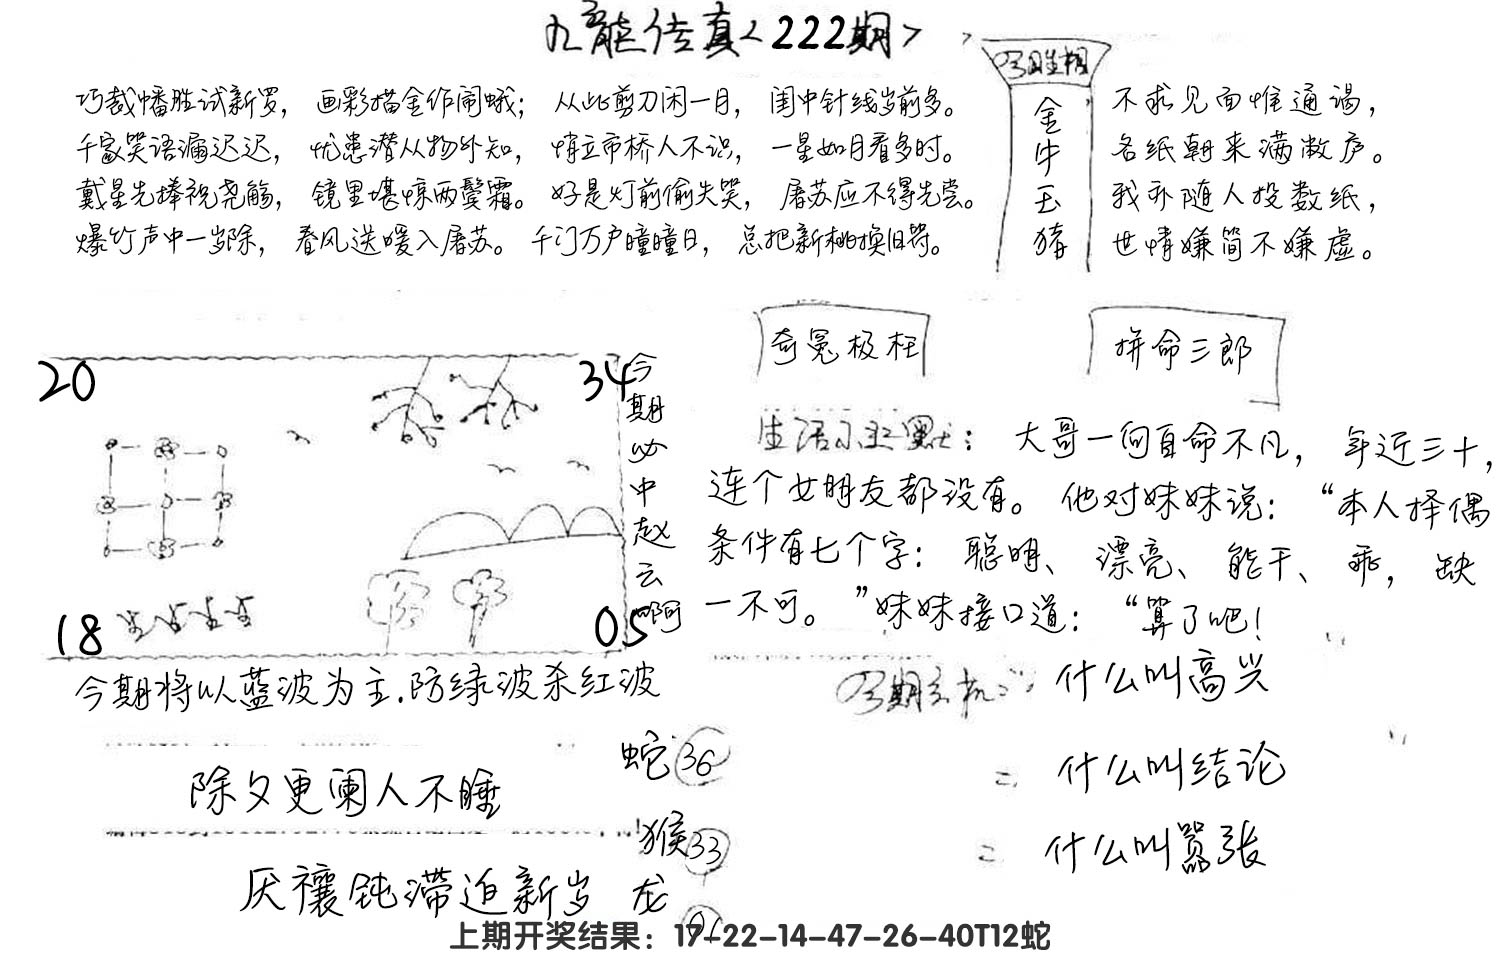 九龙传真<222期>
巧裁幡胜试新罗，画彩描金作闹蛾；从此剪刀闲一月，闺中针线岁前多。
千家笑语漏迟迟，忧患潜从物外知，悄立市桥人不识，一星如月看多时。
戴星先捧祝尧觞，镜里堪惊两鬓霜。好是灯前偷失笑，屠苏应不得先尝。
爆竹声中一岁除，春风送暖入屠苏。千门万户曈曈日，总把新桃换旧符。
今期生相
金牛玉猪
不求见面惟通谒，
名纸朝来满敝庐。
我亦随人投数纸，
世情嫌简不嫌虚。
20
34
18
05
今期必中赵云啊
今期将以蓝波为主.防绿波杀红波
除夕更阑人不睡
厌禳钝滞迫新岁
蛇36
猴33
龙
奇冤极枉
拼命三郎
生活小幽默：大哥一向自命不凡，年近三十，
连个女朋友都没有。他对妹妹说：“本人择偶
条件有七个字：聪明、漂亮、能干、乖，缺
一不可。”妹妹接口道：“算了吧！
今期玄机：什么叫高兴
什么叫结论
什么叫嚣张
上期开奖结果：17-22-14-47-26-40T12蛇